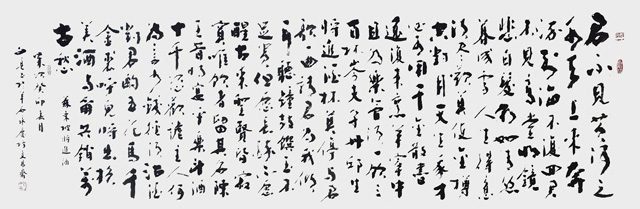 君不見黃河之
水天上來奔
流到海不復回君
不見高堂明鏡
悲白髮朝如青絲
暮成雪人生得意
須盡歡莫使金樽
空對月天生我才
必有用千金散盡
還復來烹羊宰牛
且為樂會須一飲三
百杯岑夫子丹邱生
將進酒杯莫停與君
歌一曲請君為我傾
耳聽鐘鼓饌玉不
足貴但願長醉不願
醒古來聖賢皆寂
寞惟飲者留其名陳
王昔時宴平樂斗酒
十千恣歡謔主人何
為言少錢徑須沽酒
對君酌五花馬千
金裘呼兒將出換
美酒與爾共銷萬
古愁
將進酒
歲次癸卯